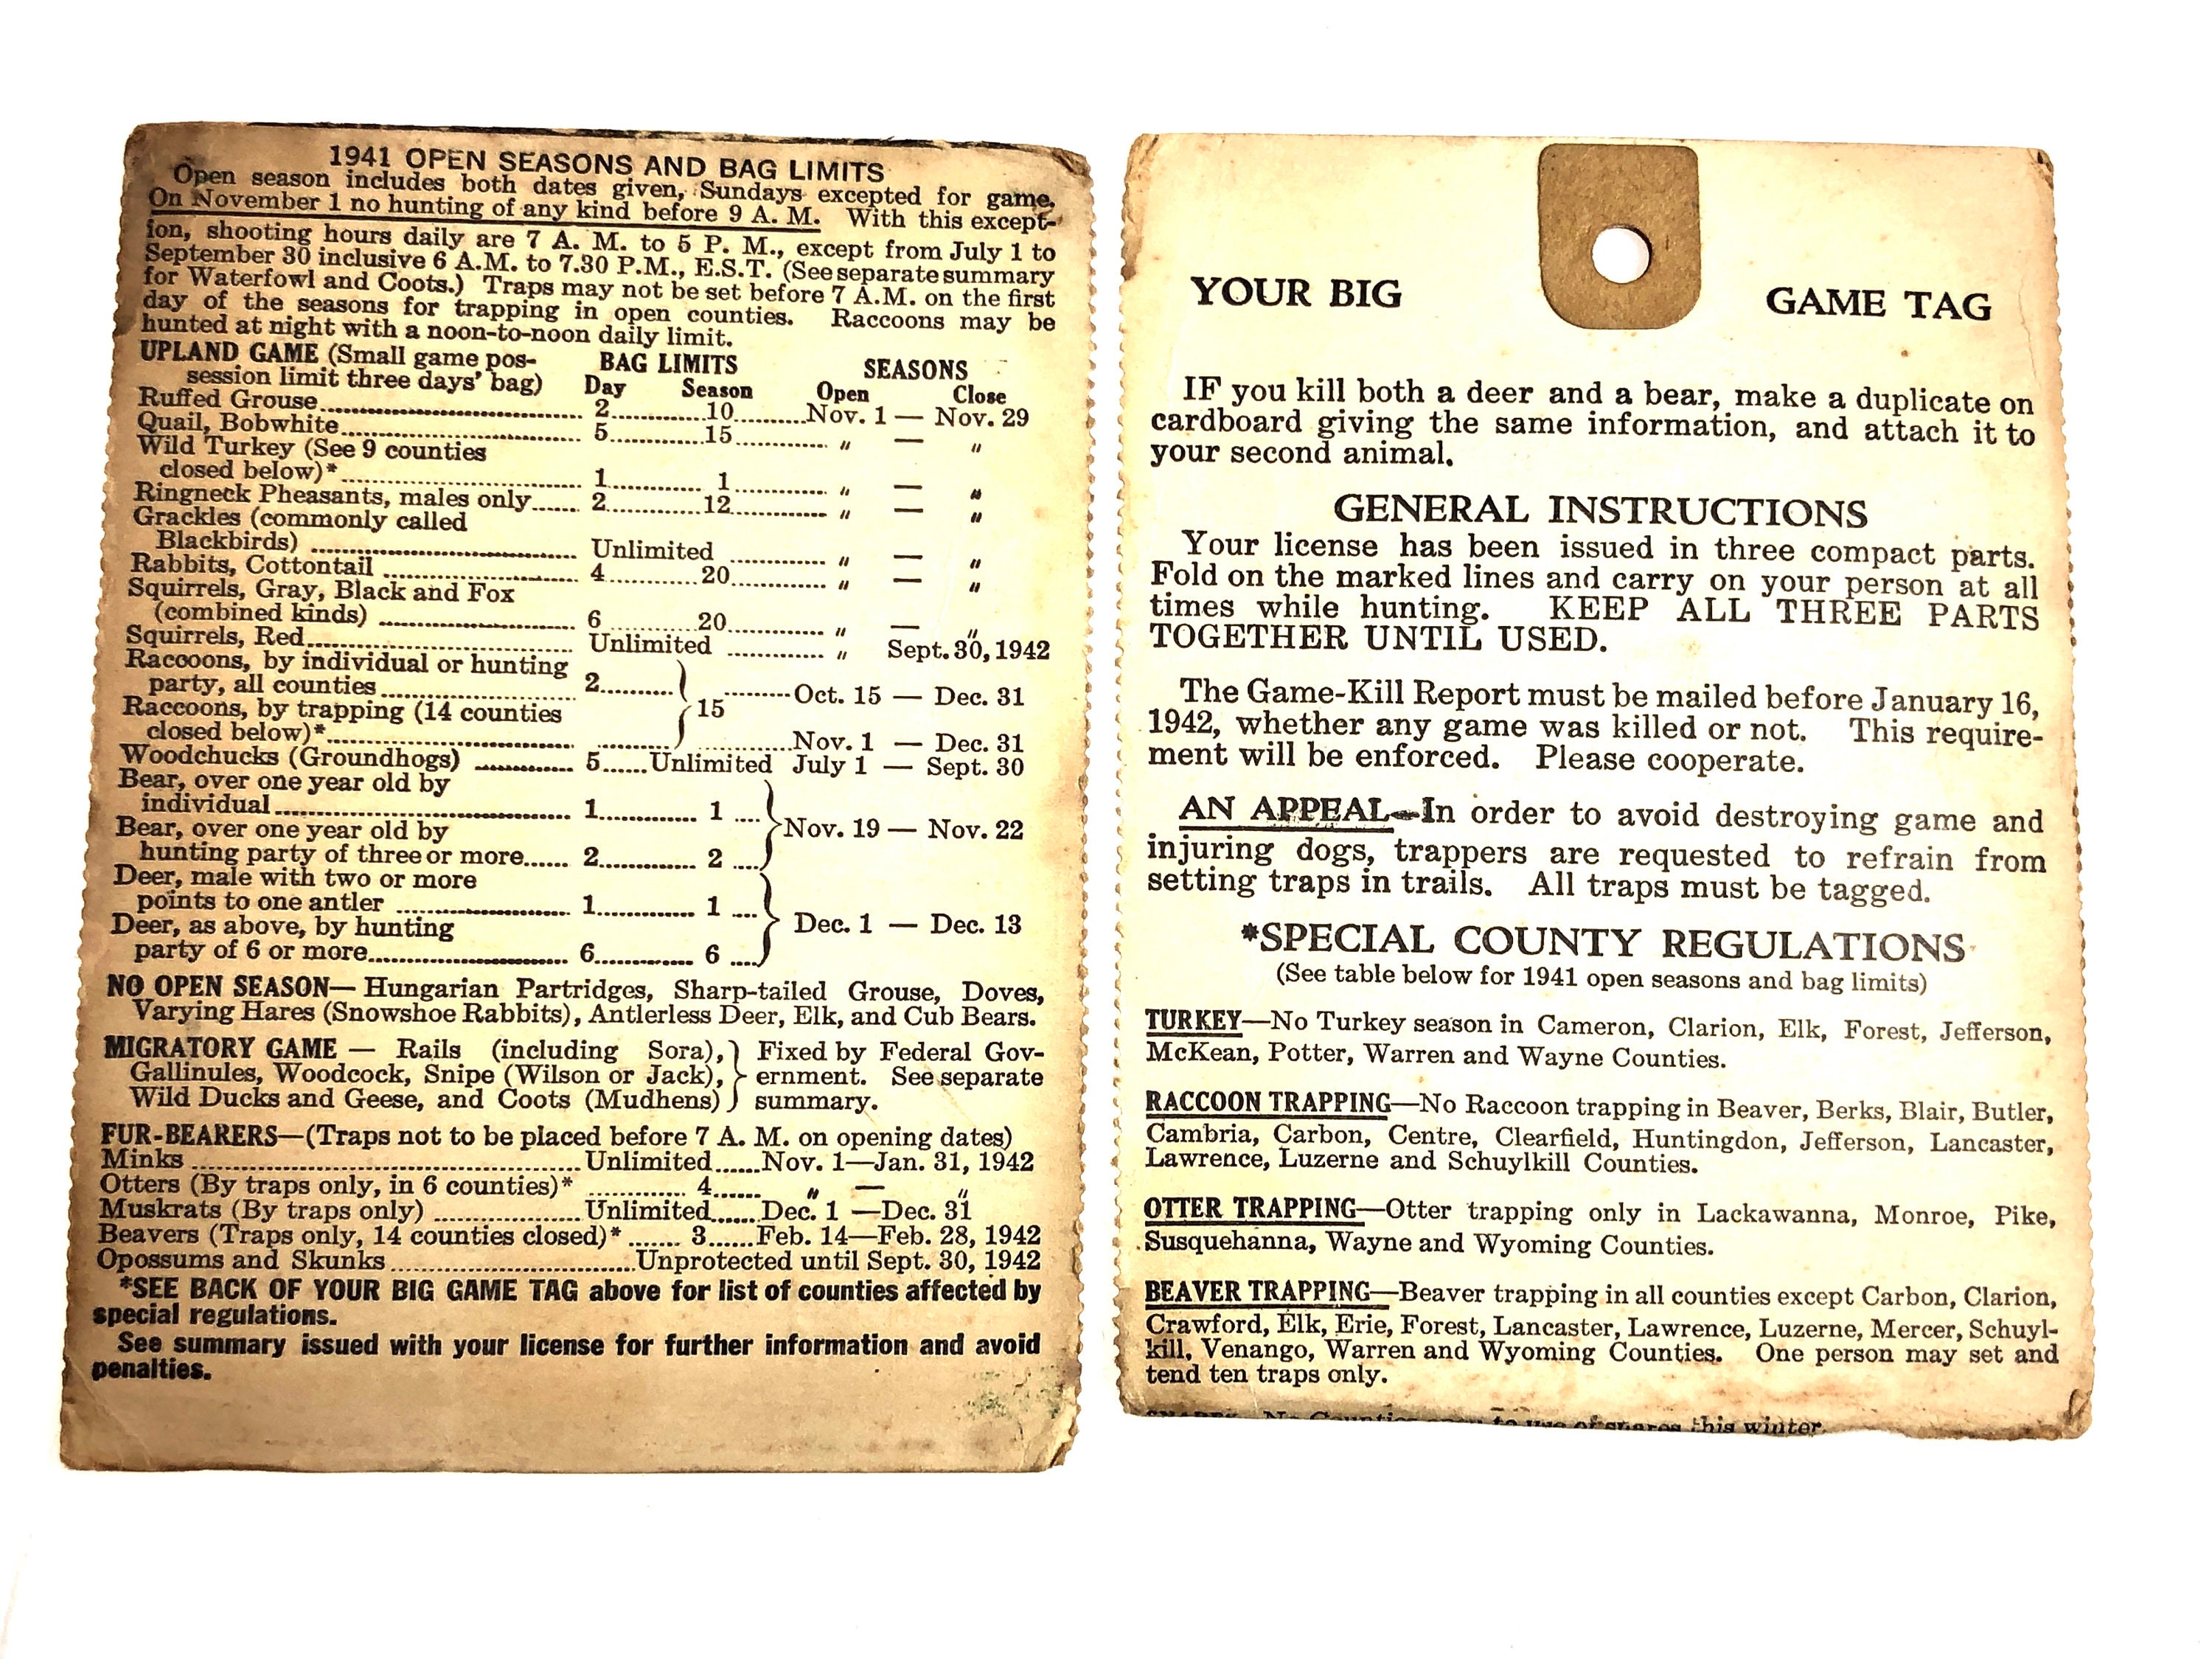 1941 OPEN SEASONS AND BAG LIMITS
Open season includes both dates given, Sundays excepted for game.
On November 1 no hunting of any kind before 9 A. M. With this except-
ion, shooting hours daily are 7 A. M. to 5 P. M., except from July 1 to
September 30 inclusive 6 A.M. to 7.30 P.M., E.S.T. (See separate summary
for Waterfowl and Coots.) Traps may not be set before 7 A.M. on the first
day of the seasons for trapping in open counties. Raccoons may be
hunted at night with a noon-to-noon daily limit.
UPLAND GAME (Small game pos- BAG LIMITS SEASONS
session limit three days' bag) Day Season Open Close
Ruffed Grouse 2 10 Nov. 1 — Nov. 29
Quail, Bobwhite 5 15 " — "
Wild Turkey (See 9 counties
closed below)* 1 1 " — "
Ringneck Pheasants, males only 2 12 " — "
Grackles (commonly called
Blackbirds) Unlimited " — "
Rabbits, Cottontail 4 20 " — "
Squirrels, Gray, Black and Fox
(combined kinds) 6 20 " — "
Squirrels, Red Unlimited " Sept. 30, 1942
Raccoons, by individual or hunting
party, all counties 2 Oct. 15 — Dec. 31
Raccoons, by trapping (14 counties 15
closed below)* Nov. 1 — Dec. 31
Woodchucks (Groundhogs) 5 Unlimited July 1 — Sept. 30
Bear, over one year old by
individual 1 1
Bear, over one year old by Nov. 19 — Nov. 22
hunting party of three or more 2 2
Deer, male with two or more
points to one antler 1 1
Deer, as above, by hunting Dec. 1 — Dec. 13
party of 6 or more 6 6
NO OPEN SEASON— Hungarian Partridges, Sharp-tailed Grouse, Doves,
Varying Hares (Snowshoe Rabbits), Antlerless Deer, Elk, and Cub Bears.
MIGRATORY GAME — Rails (including Sora), Fixed by Federal Gov-
Gallinules, Woodcock, Snipe (Wilson or Jack), ernment. See separate
Wild Ducks and Geese, and Coots (Mudhens) summary.
FUR-BEARERS—(Traps not to be placed before 7 A. M. on opening dates)
Minks Unlimited Nov. 1—Jan. 31, 1942
Otters (By traps only, in 6 counties)* 4 " — "
Muskrats (By traps only) Unlimited Dec. 1 —Dec. 31
Beavers (Traps only, 14 counties closed)* 3 Feb. 14—Feb. 28, 1942
Opossums and Skunks Unprotected until Sept. 30, 1942
*SEE BACK OF YOUR BIG GAME TAG above for list of counties affected by
special regulations.
See summary issued with your license for further information and avoid
penalties.
YOUR BIG GAME TAG
IF you kill both a deer and a bear, make a duplicate on
cardboard giving the same information, and attach it to
your second animal.
GENERAL INSTRUCTIONS
Your license has been issued in three compact parts.
Fold on the marked lines and carry on your person at all
times while hunting. KEEP ALL THREE PARTS
TOGETHER UNTIL USED.
The Game-Kill Report must be mailed before January 16,
1942, whether any game was killed or not. This require-
ment will be enforced. Please cooperate.
AN APPEAL—In order to avoid destroying game and
injuring dogs, trappers are requested to refrain from
setting traps in trails. All traps must be tagged.
*SPECIAL COUNTY REGULATIONS
(See table below for 1941 open seasons and bag limits)
TURKEY—No Turkey season in Cameron, Clarion, Elk, Forest, Jefferson,
McKean, Potter, Warren and Wayne Counties.
RACCOON TRAPPING—No Raccoon trapping in Beaver, Berks, Blair, Butler,
Cambria, Carbon, Centre, Clearfield, Huntingdon, Jefferson, Lancaster,
Lawrence, Luzerne and Schuylkill Counties.
OTTER TRAPPING—Otter trapping only in Lackawanna, Monroe, Pike,
Susquehanna, Wayne and Wyoming Counties.
BEAVER TRAPPING—Beaver trapping in all counties except Carbon, Clarion,
Crawford, Elk, Erie, Forest, Lancaster, Lawrence, Luzerne, Mercer, Schuyl-
kill, Venango, Warren and Wyoming Counties. One person may set and
tend ten traps only.
to use of snares this winter.